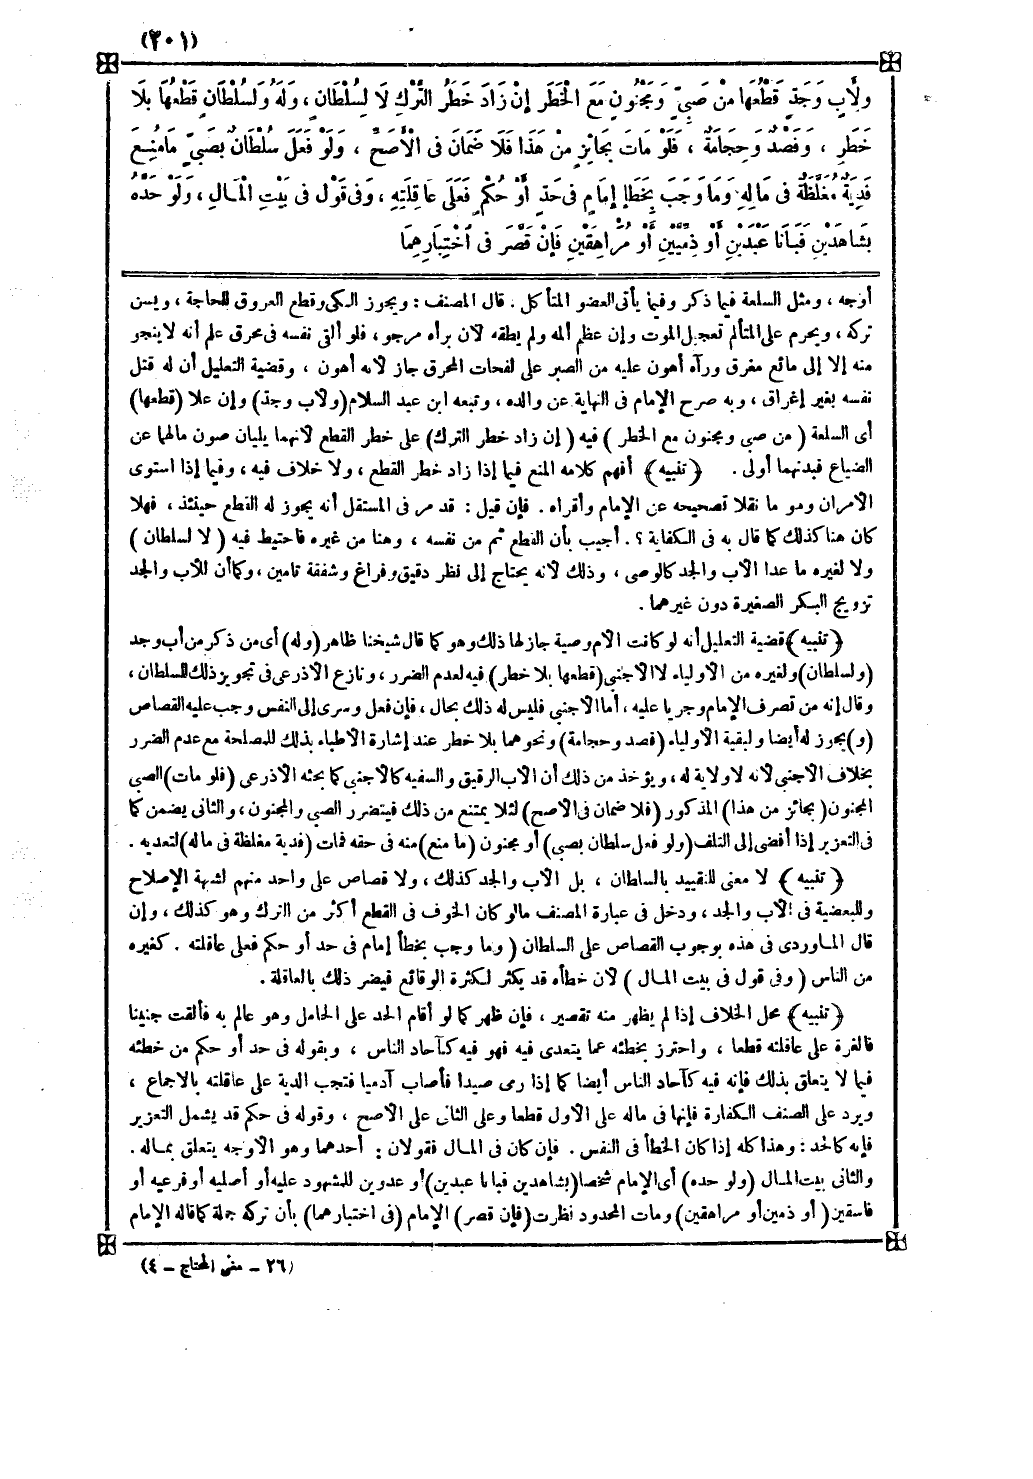 (٢٠١)
وَلِأَبٍ وَجَدٍّ قَطْعُهَا مِنْ صَبِيٍّ وَمَجْنُونٍ مَعَ الْخَطَرِ إِنْ زَادَ خَطَرُ التَّرْكِ لَا لِسُلْطَانٍ ، وَلَهُ وَلِسُلْطَانٍ قَطْعُهَا بِلَا
خَطَرٍ ، وَفَصْدٌ وَحِجَامَةٌ ، فَلَوْ مَاتَ بِجَائِزٍ مِنْ هَذَا فَلَا ضَمَانَ فِى الْأَصَحِّ ، وَلَوْ فَعَلَ سُلْطَانٌ بِصَبِيٍّ مَا مُنِعَ
فَدِيَةٌ مُغَلَّظَةٌ فِى مَالِهِ وَمَا وَجَبَ بِخَطَإِ إِمَامٍ فِى حَدٍّ أَوْ حُكْمٍ فَعَلَى عَاقِلَتِهِ ، وَفِى قَوْلٍ فِى بَيْتِ الْمَالِ ، وَلَوْ حَدَّهُ
بِشَاهِدَيْنِ فَبَانَا عَبْدَيْنِ أَوْ ذِمِّيَّيْنِ أَوْ مُرَاهِقَيْنِ فَإِنْ قَصَّرَ فِى اخْتِبَارِهِمَا
أوجه ، ومثل السلعة فيما ذكر وفيما يأتى العضو المتأكل . قال المصنف : ويجوز الكى وقطع العروق للحاجة ، ويسن
تركه ، ويحرم على المتألم تعجيل الموت وإن عظم ألمه ولم يطقه لأن برأه مرجو ، فلو ألقى نفسه فى محرق علم أنه لا ينجو
منه إلا إلى مائع مغرق ورآه أهون عليه من الصبر على لفحات المحرق جاز لأنه أهون ، وقضية التعليل أن له قتل
نفسه بغير إغراق ، وبه صرح الإمام فى النهاية عن والده ، وتبعه ابن عبد السلام (ولأب وجد) وإن علا (قطعها)
أى السلعة ( من صبى ومجنون مع الخطر ) فيه ( إن زاد خطر الترك) على خطر القطع لأنهما يليان صون مالهما عن
الضياع فبدنهما أولى . ﴿ تنبيه ﴾ أفهم كلامه المنع فيما إذا زاد خطر القطع ، ولا خلاف فيه ، وفيما إذا استوى
الأمران وهو ما نقلا تصحيحه عن الإمام وأقراه . فإن قيل : قد مر فى المستقل أنه يجوز له القطع حينئذ ، فهلا
كان هنا كذلك كما قال به فى الكفاية ؟ . أجيب بأن القطع ثم من نفسه ، وهنا من غيره فاحتيط فيه ( لا لسلطان )
ولا لغيره ما عدا الأب والجد كالوصى ، وذلك لأنه يحتاج إلى نظر دقيق وفراغ وشفقة تامين ، وكما أن للأب والجد
تزويج البكر الصغيرة دون غيرهما .
﴿ تنبيه ﴾ قضية التعليل أنه لو كانت الأم وصية جاز لها ذلك وهو كما قال شيخنا ظاهر (وله) أى من ذكر من أب وجد
(ولسلطان) ولغيره من الأولياء لا الأجنبى (قطعها بلا خطر) فيه لعدم الضرر ، ونازع الأذرعى فى تجويز ذلك للسلطان ،
وقال إنه من تصرف الإمام وجريا عليه ، أما الأجنبى فليس له ذلك بحال ، فإن فعل وسرى إلى النفس وجب عليه القصاص
(و) يجوز له أيضا ولبقية الأولياء (فصد وحجامة) ونحوهما بلا خطر عند إشارة الأطباء بذلك للمصلحة مع عدم الضرر
بخلاف الأجنبى لأنه لا ولاية له ، ويؤخذ من ذلك أن الأب الرقيق والسفيه كالأجنبى كما بحثه الأذرعى (فلو مات) الصبى
المجنون( بجائز من هذا) المذكور (فلا ضمان فى الأصح) لئلا يمتنع من ذلك فيتضرر الصبى والمجنون ، والثانى يضمن كما
فى التعزير إذا أفضى إلى التلف (ولو فعل سلطان بصبى) أو مجنون (ما منع) منه فى حقه فمات (فدية مغلظة فى ماله) لتعديه .
﴿ تنبيه ﴾ لا معنى للتقييد بالسلطان ، بل الأب والجد كذلك ، ولا قصاص على واحد منهم لشبهة الإصلاح
وللبعضية فى الأب والجد ، ودخل فى عبارة المصنف مالو كان الخوف فى القطع أكثر من الترك وهو كذلك ، وإن
قال الماوردى فى هذه بوجوب القصاص على السلطان ( وما وجب بخطأ إمام فى حد أو حكم فعلى عاقلته . كغيره
من الناس ( وفى قول فى بيت المال ) لأن خطأه قد يكثر لكثرة الوقائع فيضر ذلك بالعاقلة .
﴿ تنبيه ﴾ محل الخلاف إذا لم يظهر منه تقصير ، فإن ظهر كما لو أقام الحد على الحامل وهو عالم به فألقت جنينا
فالغرة على عاقلته قطعا ، واحترز بخطئه عما يتعدى فيه فهو فيه كآحاد الناس ، وبقوله فى حد أو حكم من خطئه
فيما لا يتعلق بذلك فإنه فيه كآحاد الناس أيضا كما إذا رمى صيدا فأصاب آدميا فتجب الدية على عاقلته بالإجماع ،
ويرد على الصنف الكفارة فإنها فى ماله على الأول قطعا وعلى الثانى على الأصح ، وقوله فى حكم قد يشمل التعزير
فإنه كالحد : وهذا كله إذا كان الخطأ فى النفس . فإن كان فى المال فقولان : أحدهما وهو الأوجه يتعلق بماله .
والثانى بيت المال (ولو حده) أى الإمام شخصا (بشاهدين فبانا عبدين) أو عدوين للمشهود عليه أو أصليه أو فرعيه أو
فاسقين( أو ذمين أو مراهقين) ومات المحدود نظرت (فإن قصر) الإمام (فى اختبارهما) بأن تركه جملة كما قاله الإمام
(٢٦ - مغنى المحتاج - ٤)